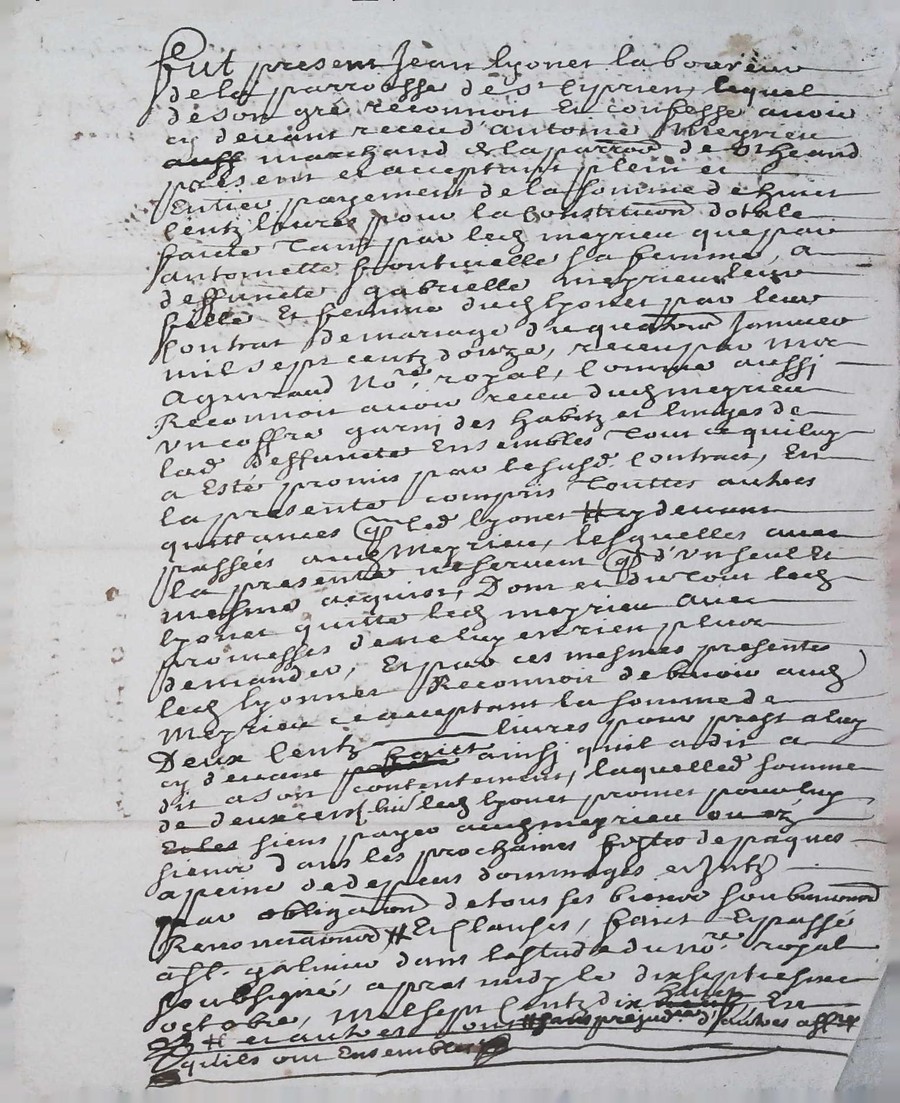 Fut present Jean Lyonet laboureur
de la parroisse de St Cyprien, lequel
de son gré reconnoit et confesse avoir
cy devant receu d'antoine Meyrieu
marchand de la parroe de St heand
present et acceptant plein et
Entier payement de la somme de huit
Centz livres pour la Constitution dotale
faite tant par led meyrieu que par
antoinette sa femme, a
deffuncte gabrielle meyrieu leur
fille Et femme dud lyonet par leur
Contrat de mariage du janvier
mil sept centz douze, receu par me
No.re royal, Comme aussi
Reconnoit avoir receu dud meyrieu
un coffre garni des habitz et linges de
lad deffuncte Ensembles tout ce qui luy
a Esté promis par le susd. Contract, En
la presente compris touttes autres
quittances q led lyonet # cy devant
passées aud Meyrieu, lesquelles avec
la presente ne servent q d'un seul Et
mesme acquior, Dont et du tout led
lyonet quitte led meyrieu avec
promesses de ne luy en rien plus
demander, Et par ces mesmes presentes
led lyonnet Reconnoit debvoir aud
Meyrieu ce acceptant la somme de
Deux Centz livres pour prest a luy
cy devant fait ainsi quil a dit a
dit a son contentement, laquelled somme
de deux cent led lyonet promet pour luy
Et les siens payer aud meyrieu ou ez
siens dans les prochaines festes de paques
a peine de despens dommages et Intz
par obligaon de tous ses biens soubmissions
Renonciaons # Et Clauses, fait Et passé
a St. galmier dans lestude du No.re royal
soubsigné, apres midy le dix septiesme
octobre, Mil sept Centz dix En
# et autres sans prejud. d'autres affes
quils ont Ensembles